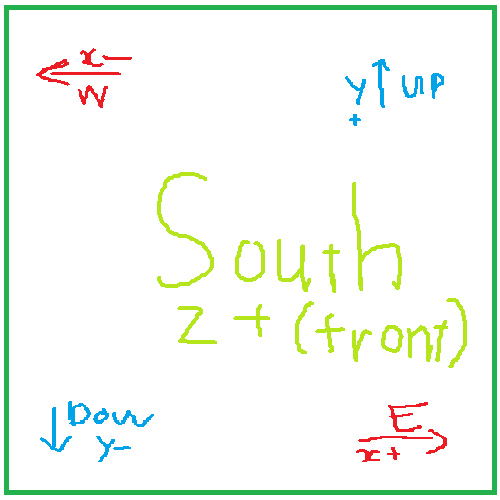 x-
W
y UP
+
South
z + (front)
Down
y-
E
x+